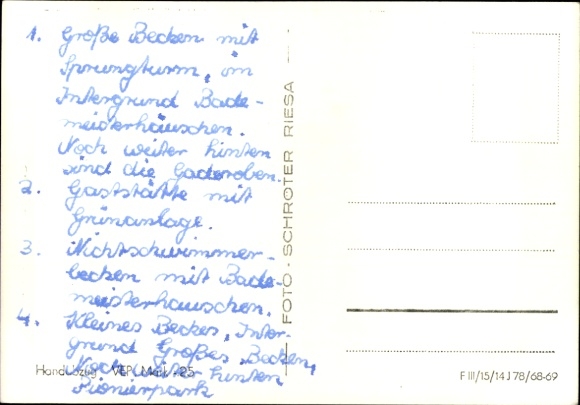 1. Große Becken mit
Sprungturm, im
Intergrund Bade-
meisterhäuschen.
Noch weiter hinten
sind die Gaderoben.
2. Gaststätte mit
Grünanlage.
3. Nichtschwimmer-
becken mit Bade-
meisterhauschen.
4. Kleines Becken, Inter-
grund Großes Becken,
Noch weiter hinten
Pionierpark
Handabzug VEP Mark -.25
FOTO - SCHROTER RIESA
F III/15/14 J 78/68-69